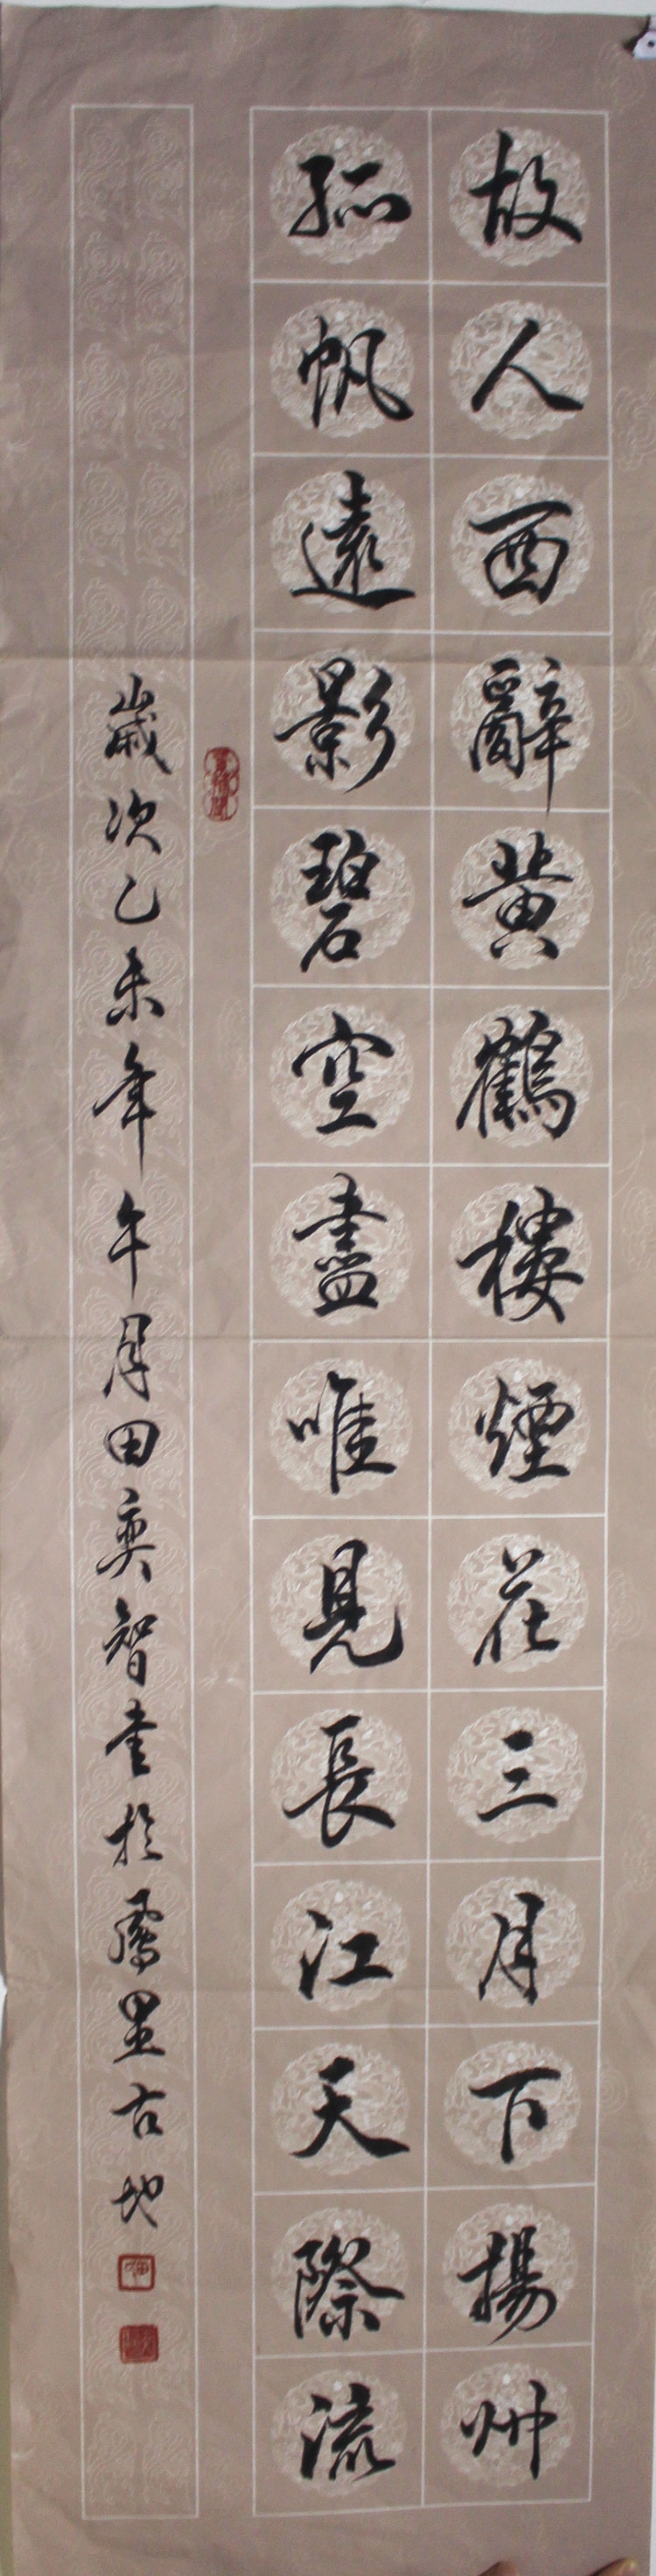 故人西辭黃鶴樓煙花三月下揚州
孤帆遠影碧空盡唯見長江天際流
歲次乙未年午月田奕智書於鳳里古地